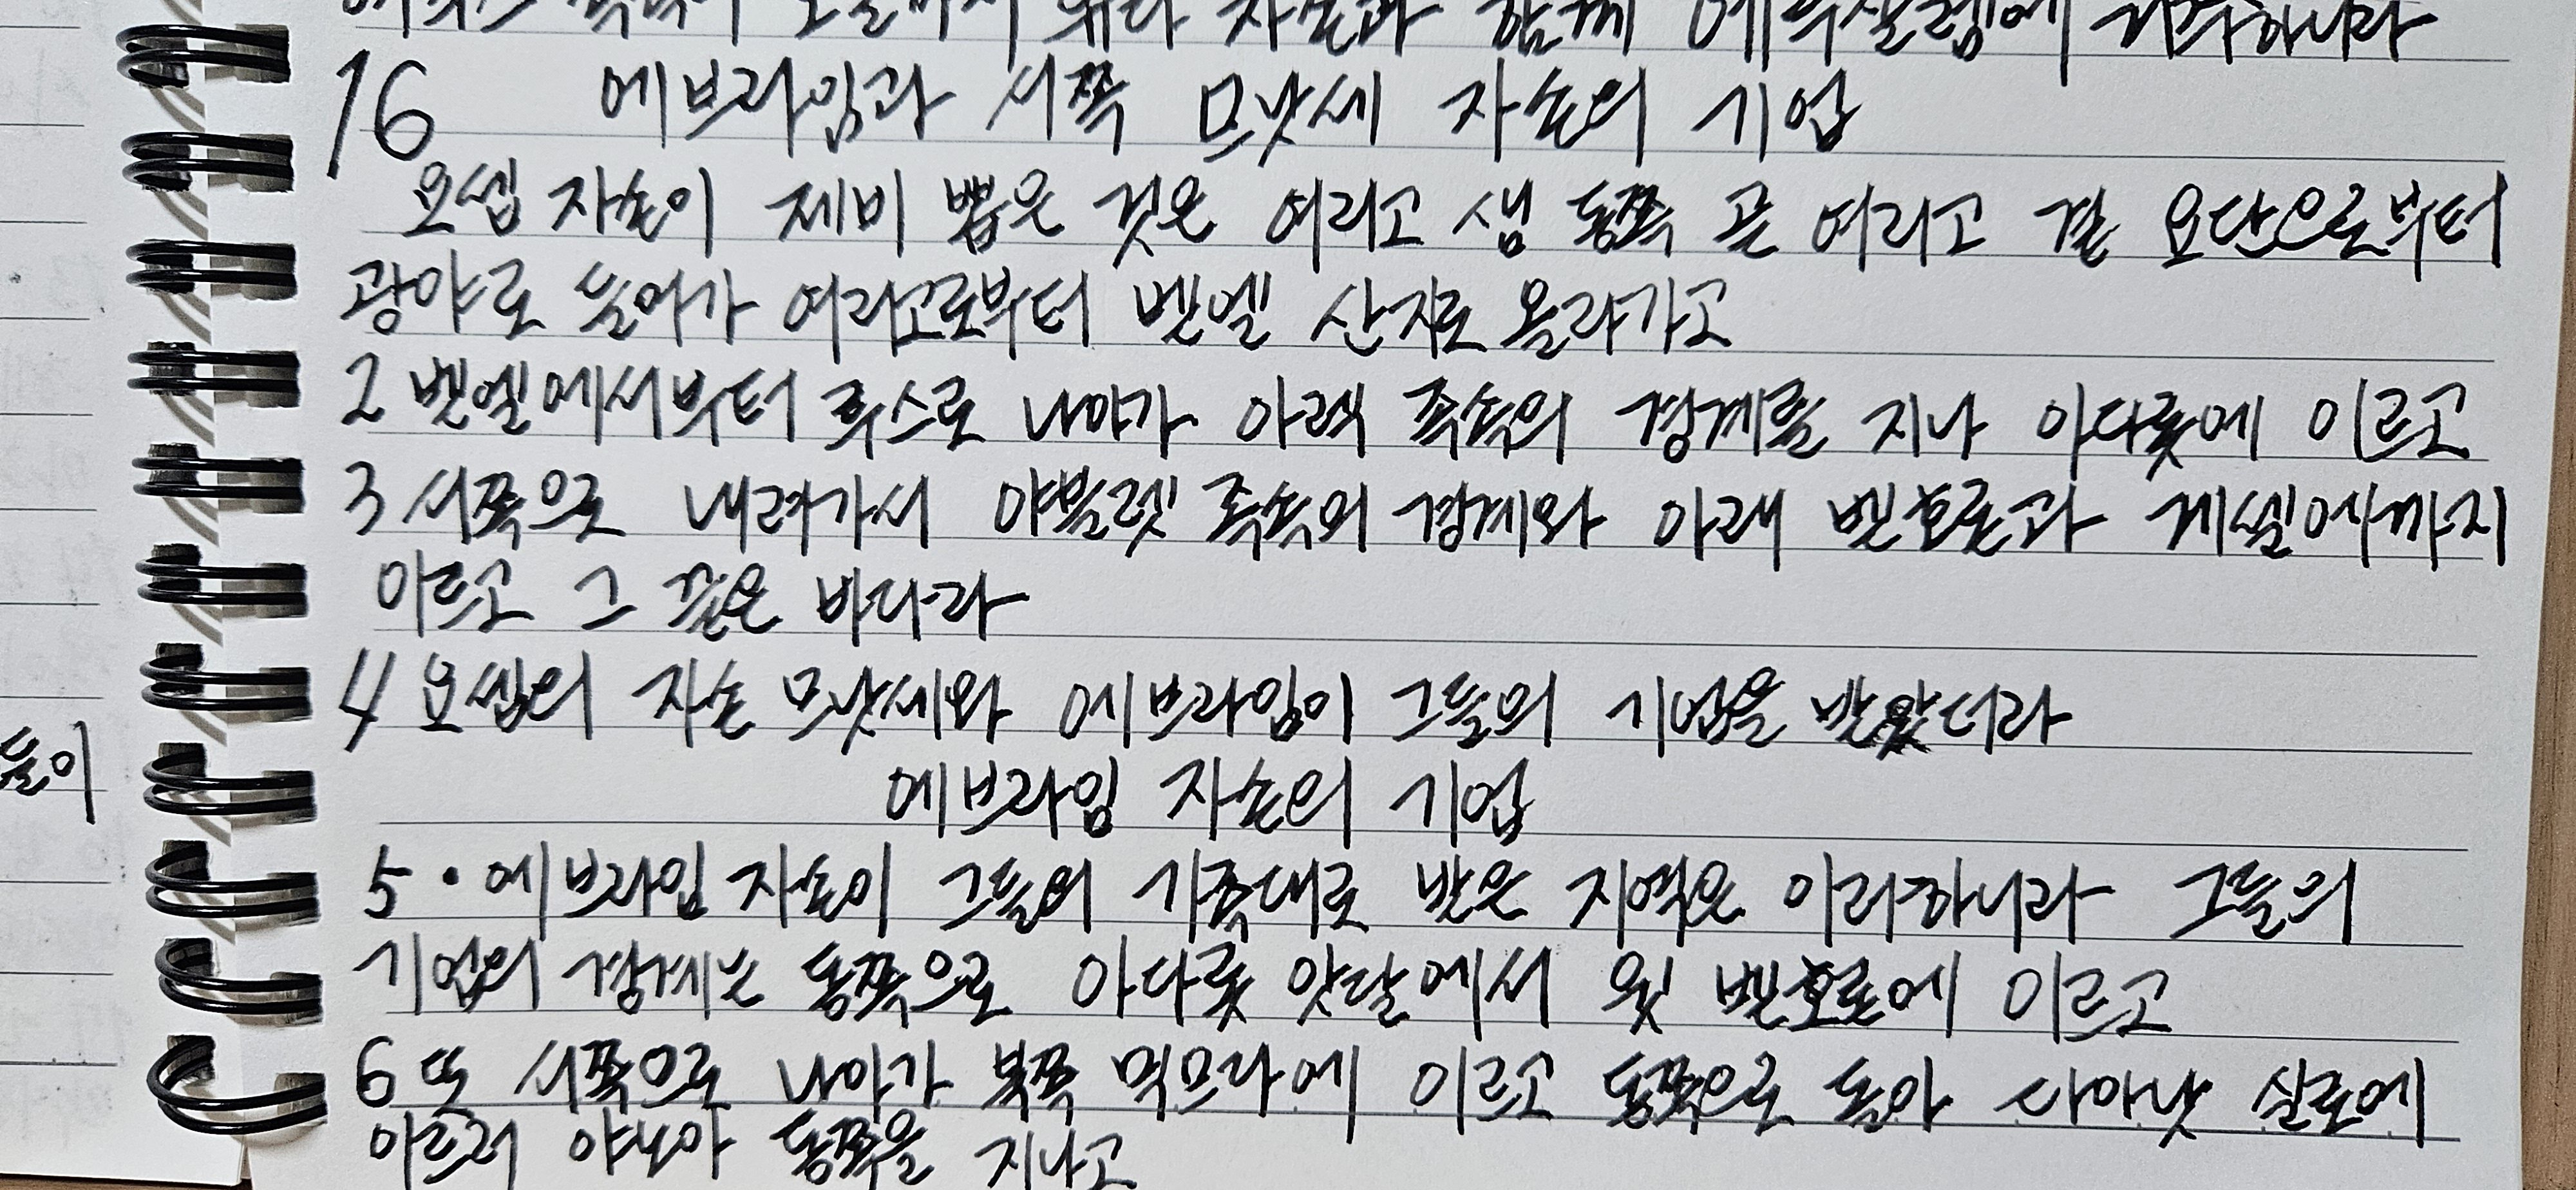 자손과 함께 예루살렘에 거주하니라
16 에브라임과 서쪽 므낫세 자손의 기업
요셉 자손이 제비 뽑은 것은 여리고 샘 동쪽 곧 여리고 곁 요단으로부터
광야로 들어가 여리고로부터 벧엘 산지로 올라가고
2 벧엘에서부터 루스로 나아가 아렉 족속의 경계를 지나 아다롯에 이르고
3 서쪽으로 내려가서 야블렛 족속의 경계와 아래 벧호론과 게셀에까지
이르고 그 끝은 바다라
4 요셉의 자손 므낫세와 에브라임이 그들의 기업을 받았더라
에브라임 자손의 기업
5 · 에브라임 자손이 그들의 가족대로 받은 지역은 이러하니라 그들의
기업의 경계는 동쪽으로 아다롯 앗달에서 윗 벧호론에 이르고
6 또 서쪽으로 나아가 북쪽 믹므다에 이르고 동쪽으로 돌아 다아낫 실로에
이르러 야노아 동쪽을 지나고
들이